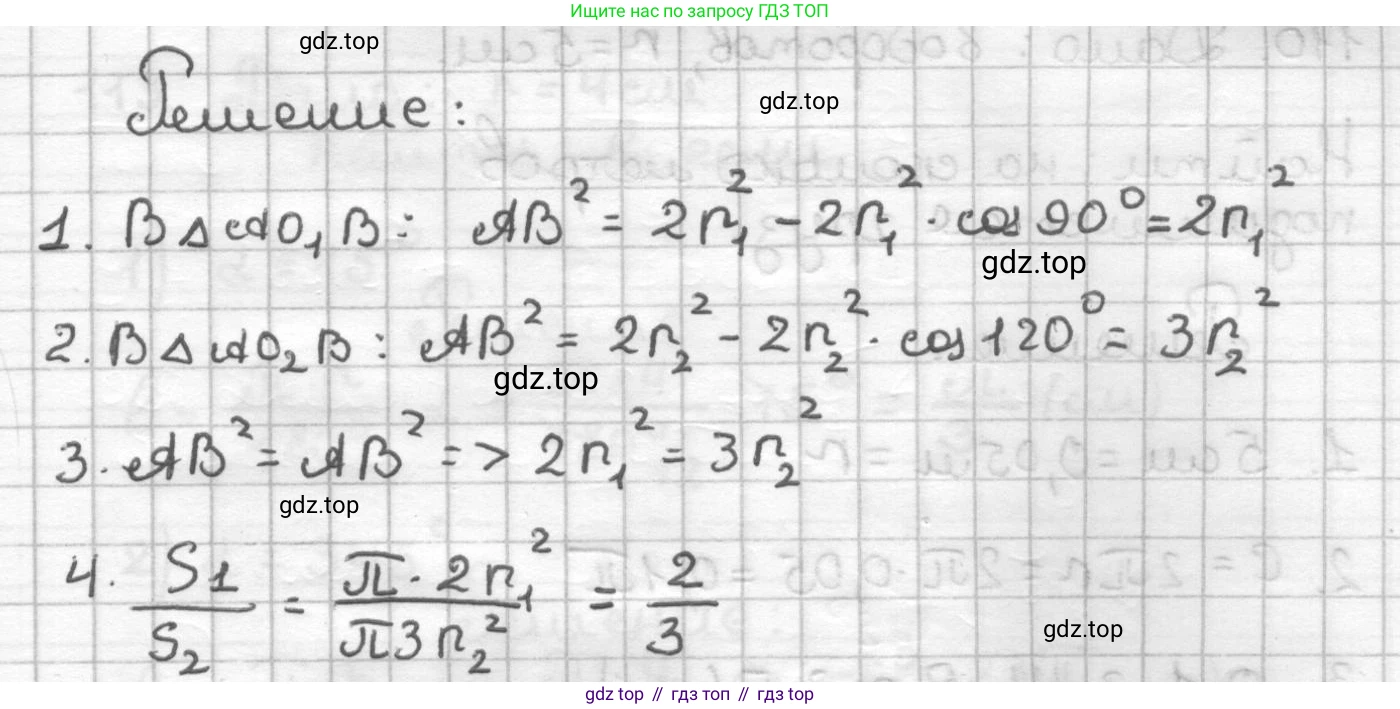 Ищите нас по запросу ГДЗ ТОП
gdz.top
Решение:
gdz.top
1. В △AO₁B: AB² = 2r₁² − 2r₁² · cos 90° = 2r₁²
gdz.top
2. В △AO₂B: AB² = 2r₂² − 2r₂² · cos 120° = 3r₂²
gdz.top
3. AB² = AB² => 2r₁² = 3r₂²
gdz.top
4. S₁/S₂ = π · 2r₁²/π3r₂² = 2/3
gdz.top
gdz top // гдз топ // гдз top